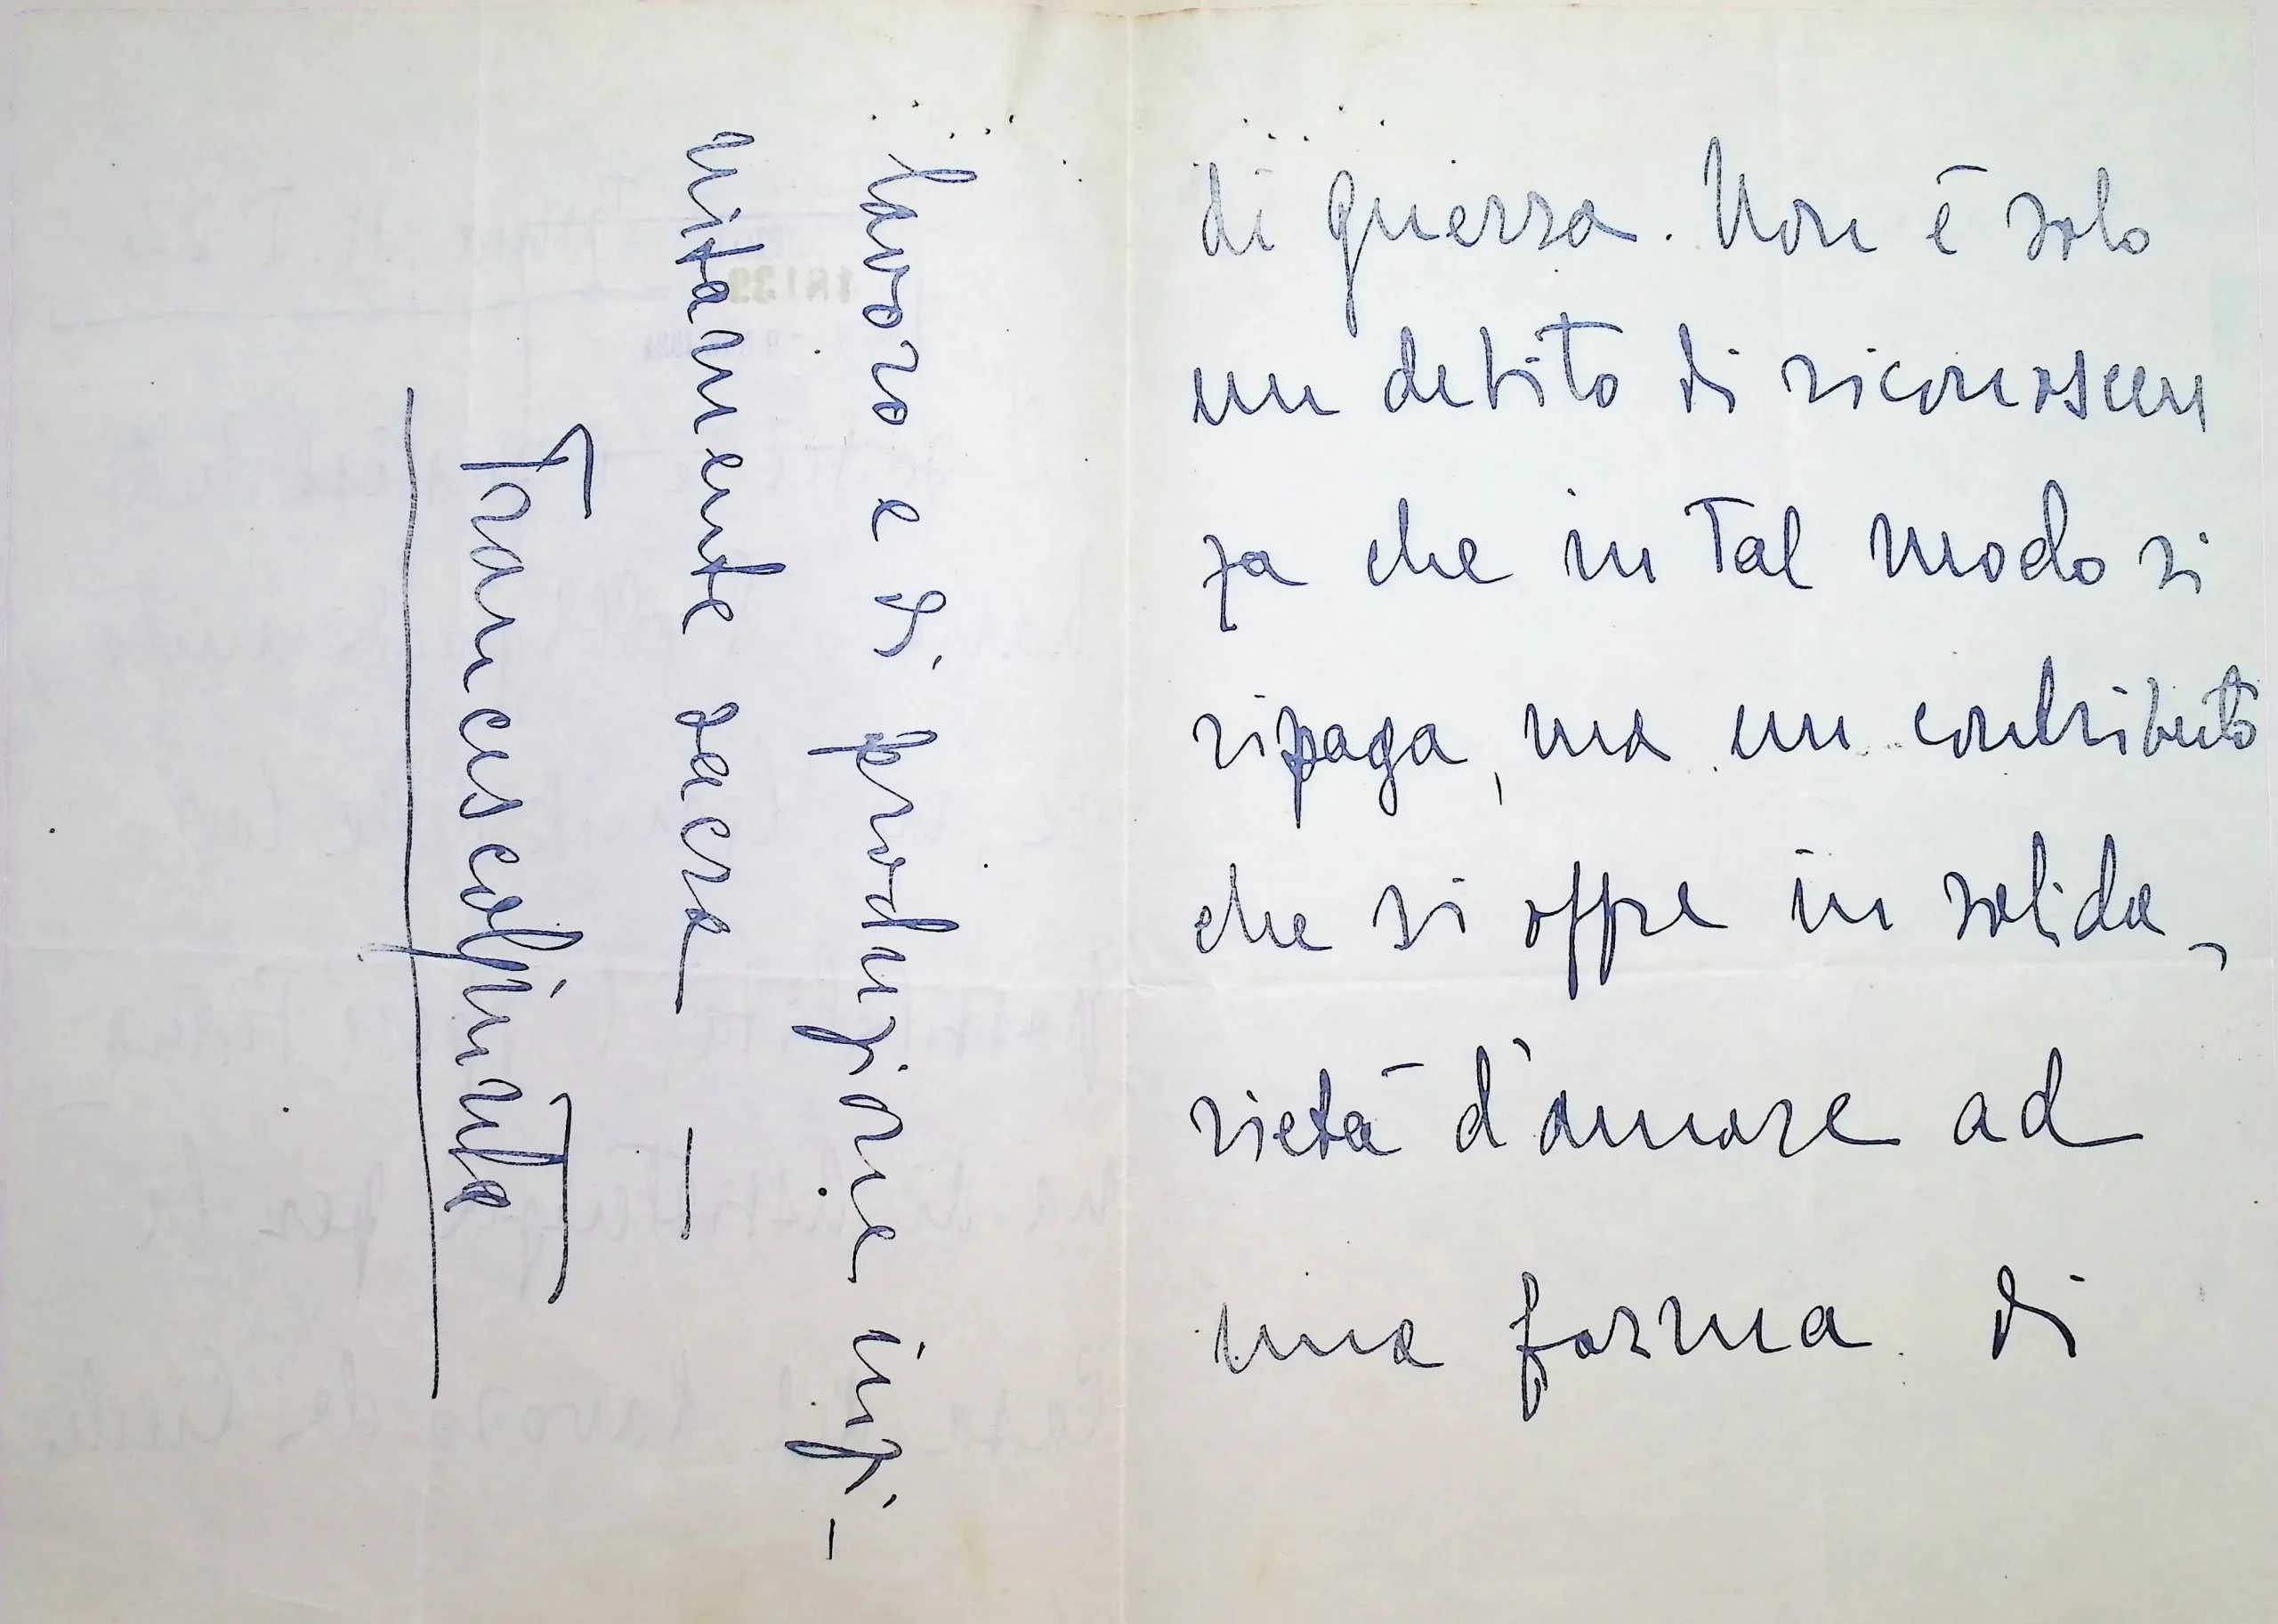 di guerra. Non è solo
un debito di riconoscen
za che in tal modo si
ripaga, ma un contributo
che si offre in solida-
rietà d'amore ad
una forma di
lavoro e di produzione infi-
nitamente sacra —
18139